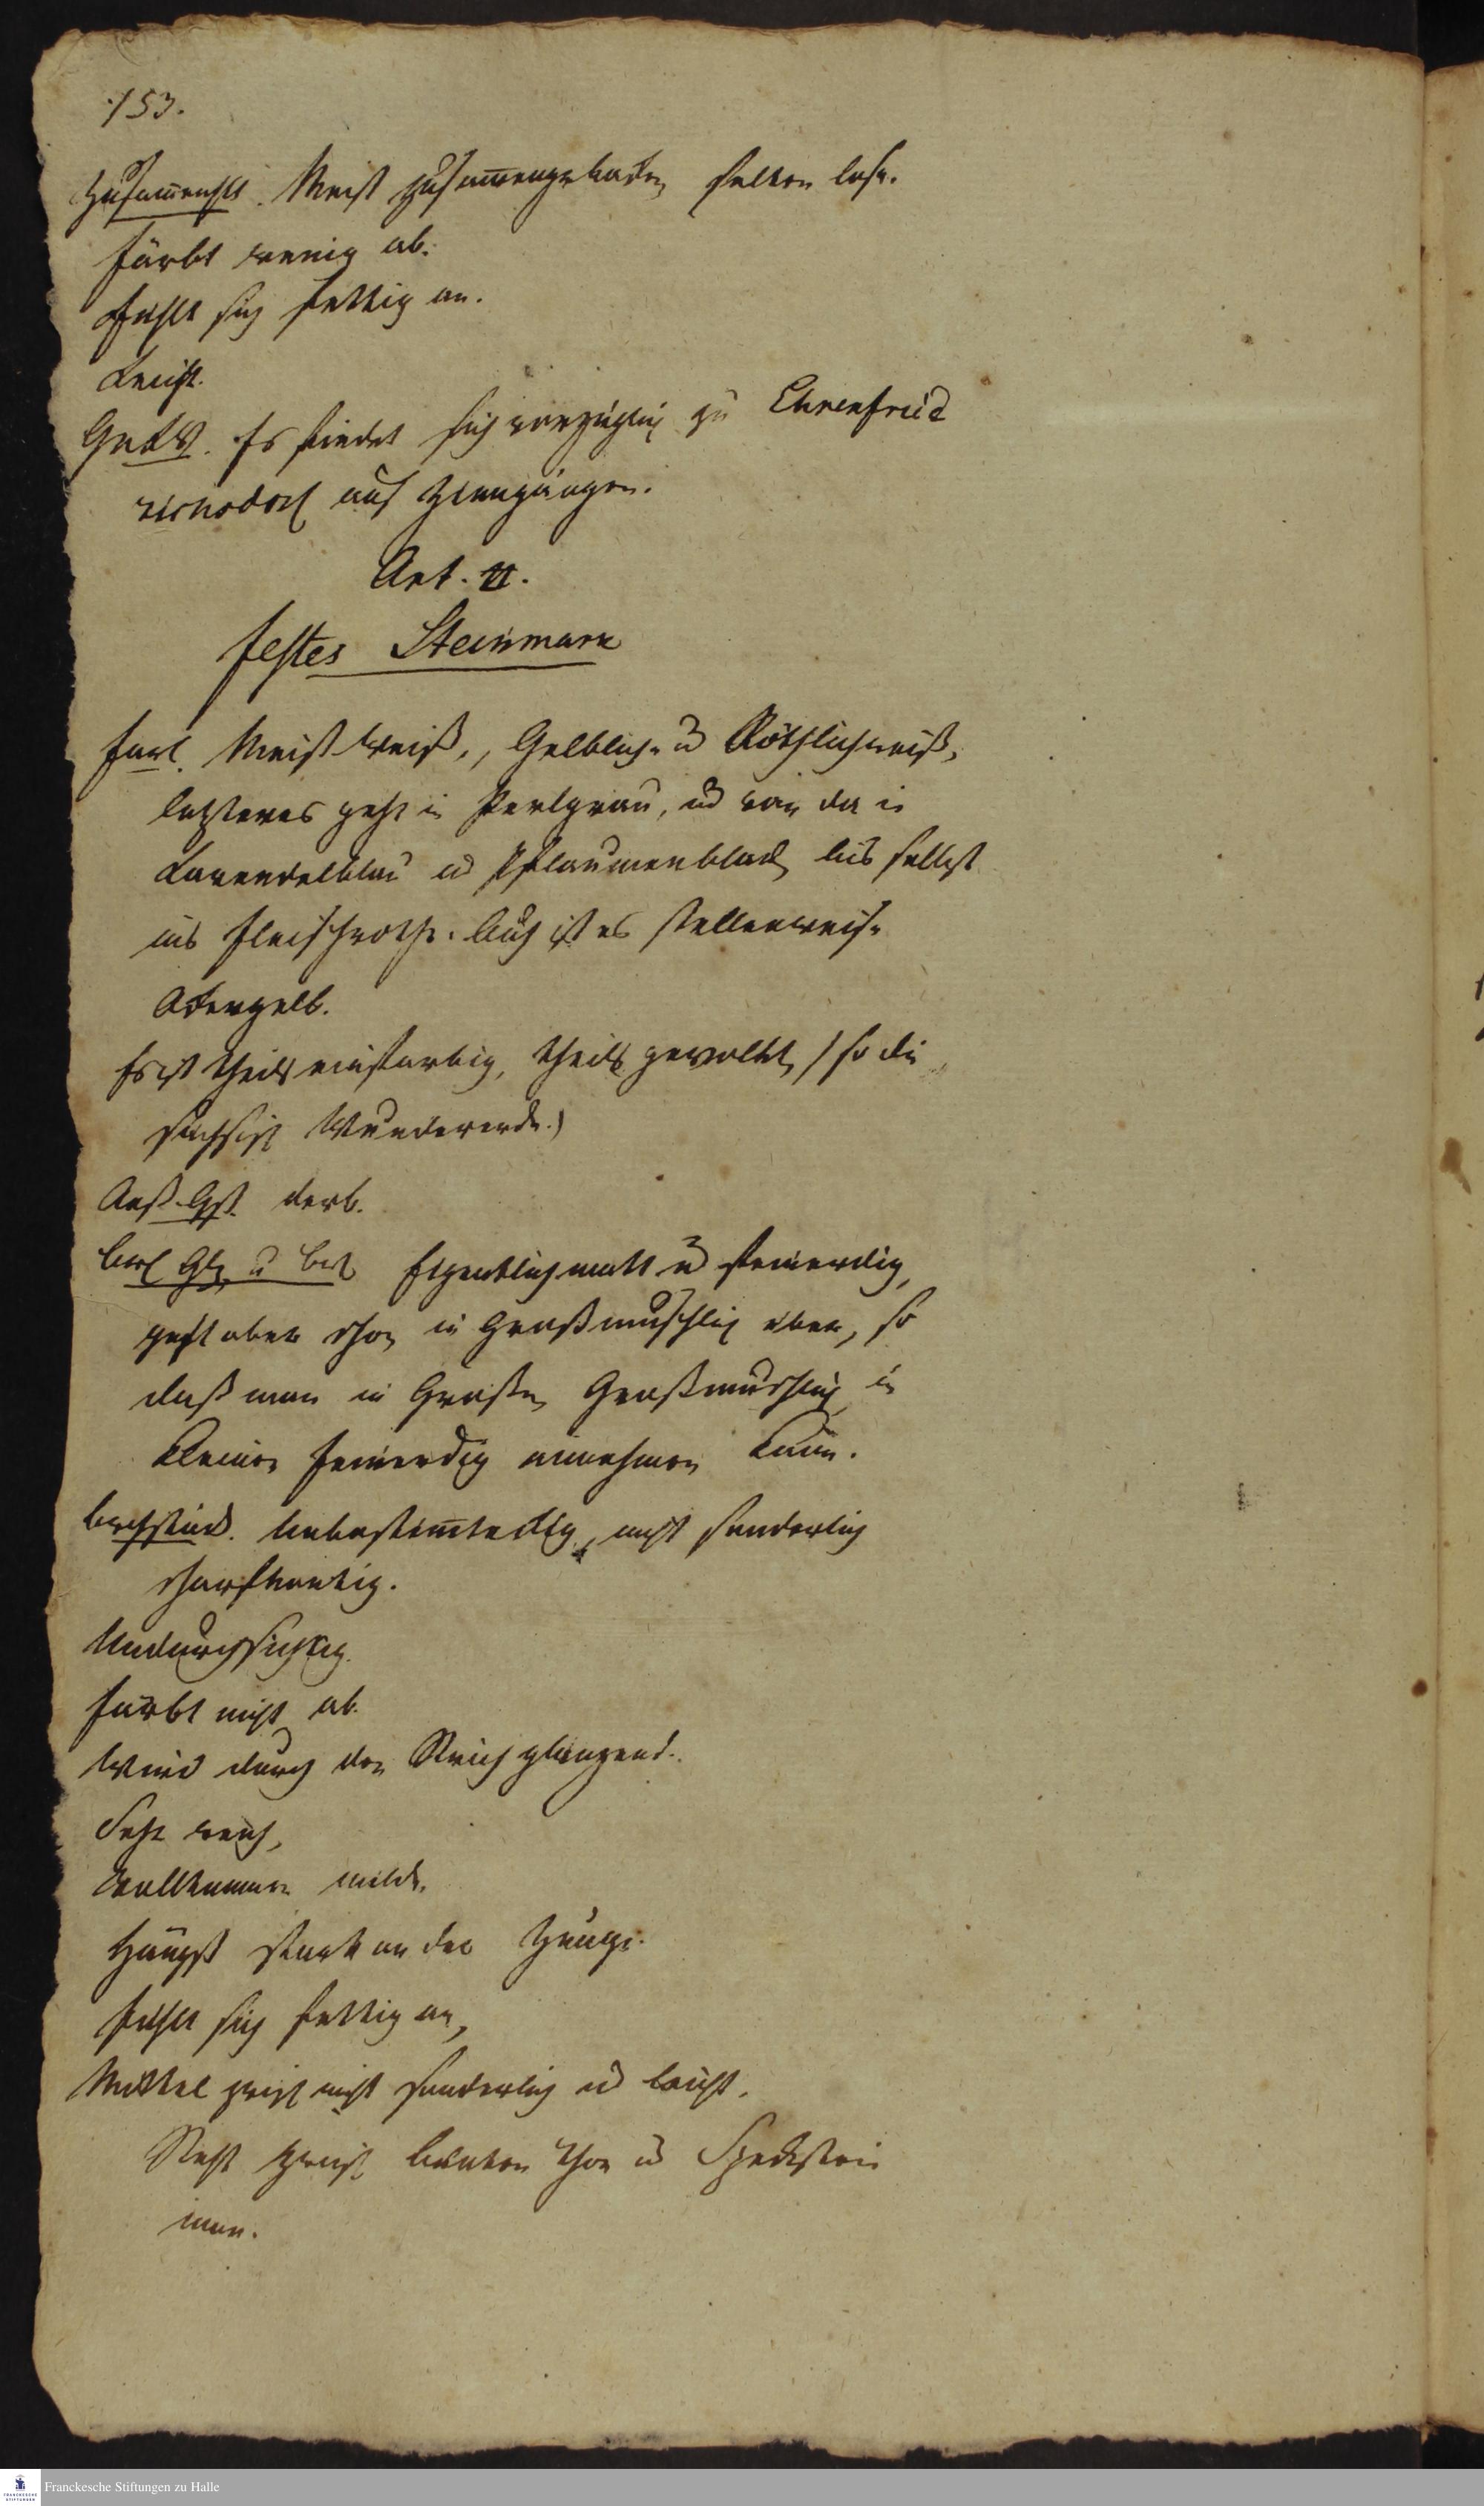 153.
Zusam̅enhlt. Meist zusam̅engebacken selten lose.
Färbt wenig ab.
Fühlt sich fettig an.
Leicht.
Es findet sich vorzüglich zu Ehrenfried
ersdorf auf Zinngängen.
Art. II.
festes Steinmark
Farb. Meist weiß, Gelblich u Röthlichweiß,
letzteres geht in Perlgrau, und von da in
Lavendelblau u Pflaumenblau, bis selbst
ins fleischrothe. Auch ist es stellenweise
Ockergelb.
Es ist theils einfarbig, theils gewolkt, (so die
sächsisch Wundererde.)
Aeß. Gst. derb.
Eigentlich matt u feinerdig,
geht aber schon in Großmuschlich über, so
daß man in Großen Großmuschlich, in
Kleinen feinerdig annehmen kann.
Bruchstück. Unbestim̅teckig, nicht sonderlich
scharfkantig.
Undurchsichtig.
Färbt nicht ab.
Wird durch den Strich glänzend.
Sehr weich,
vollkommen milde.
Hängt stark an der Zunge.
Fühlt sich fettig an,
nicht sonderlich und leicht.
Steht zwisch bunten Thon u Speckstein
innen.
Franckesche Stiftungen zu Halle